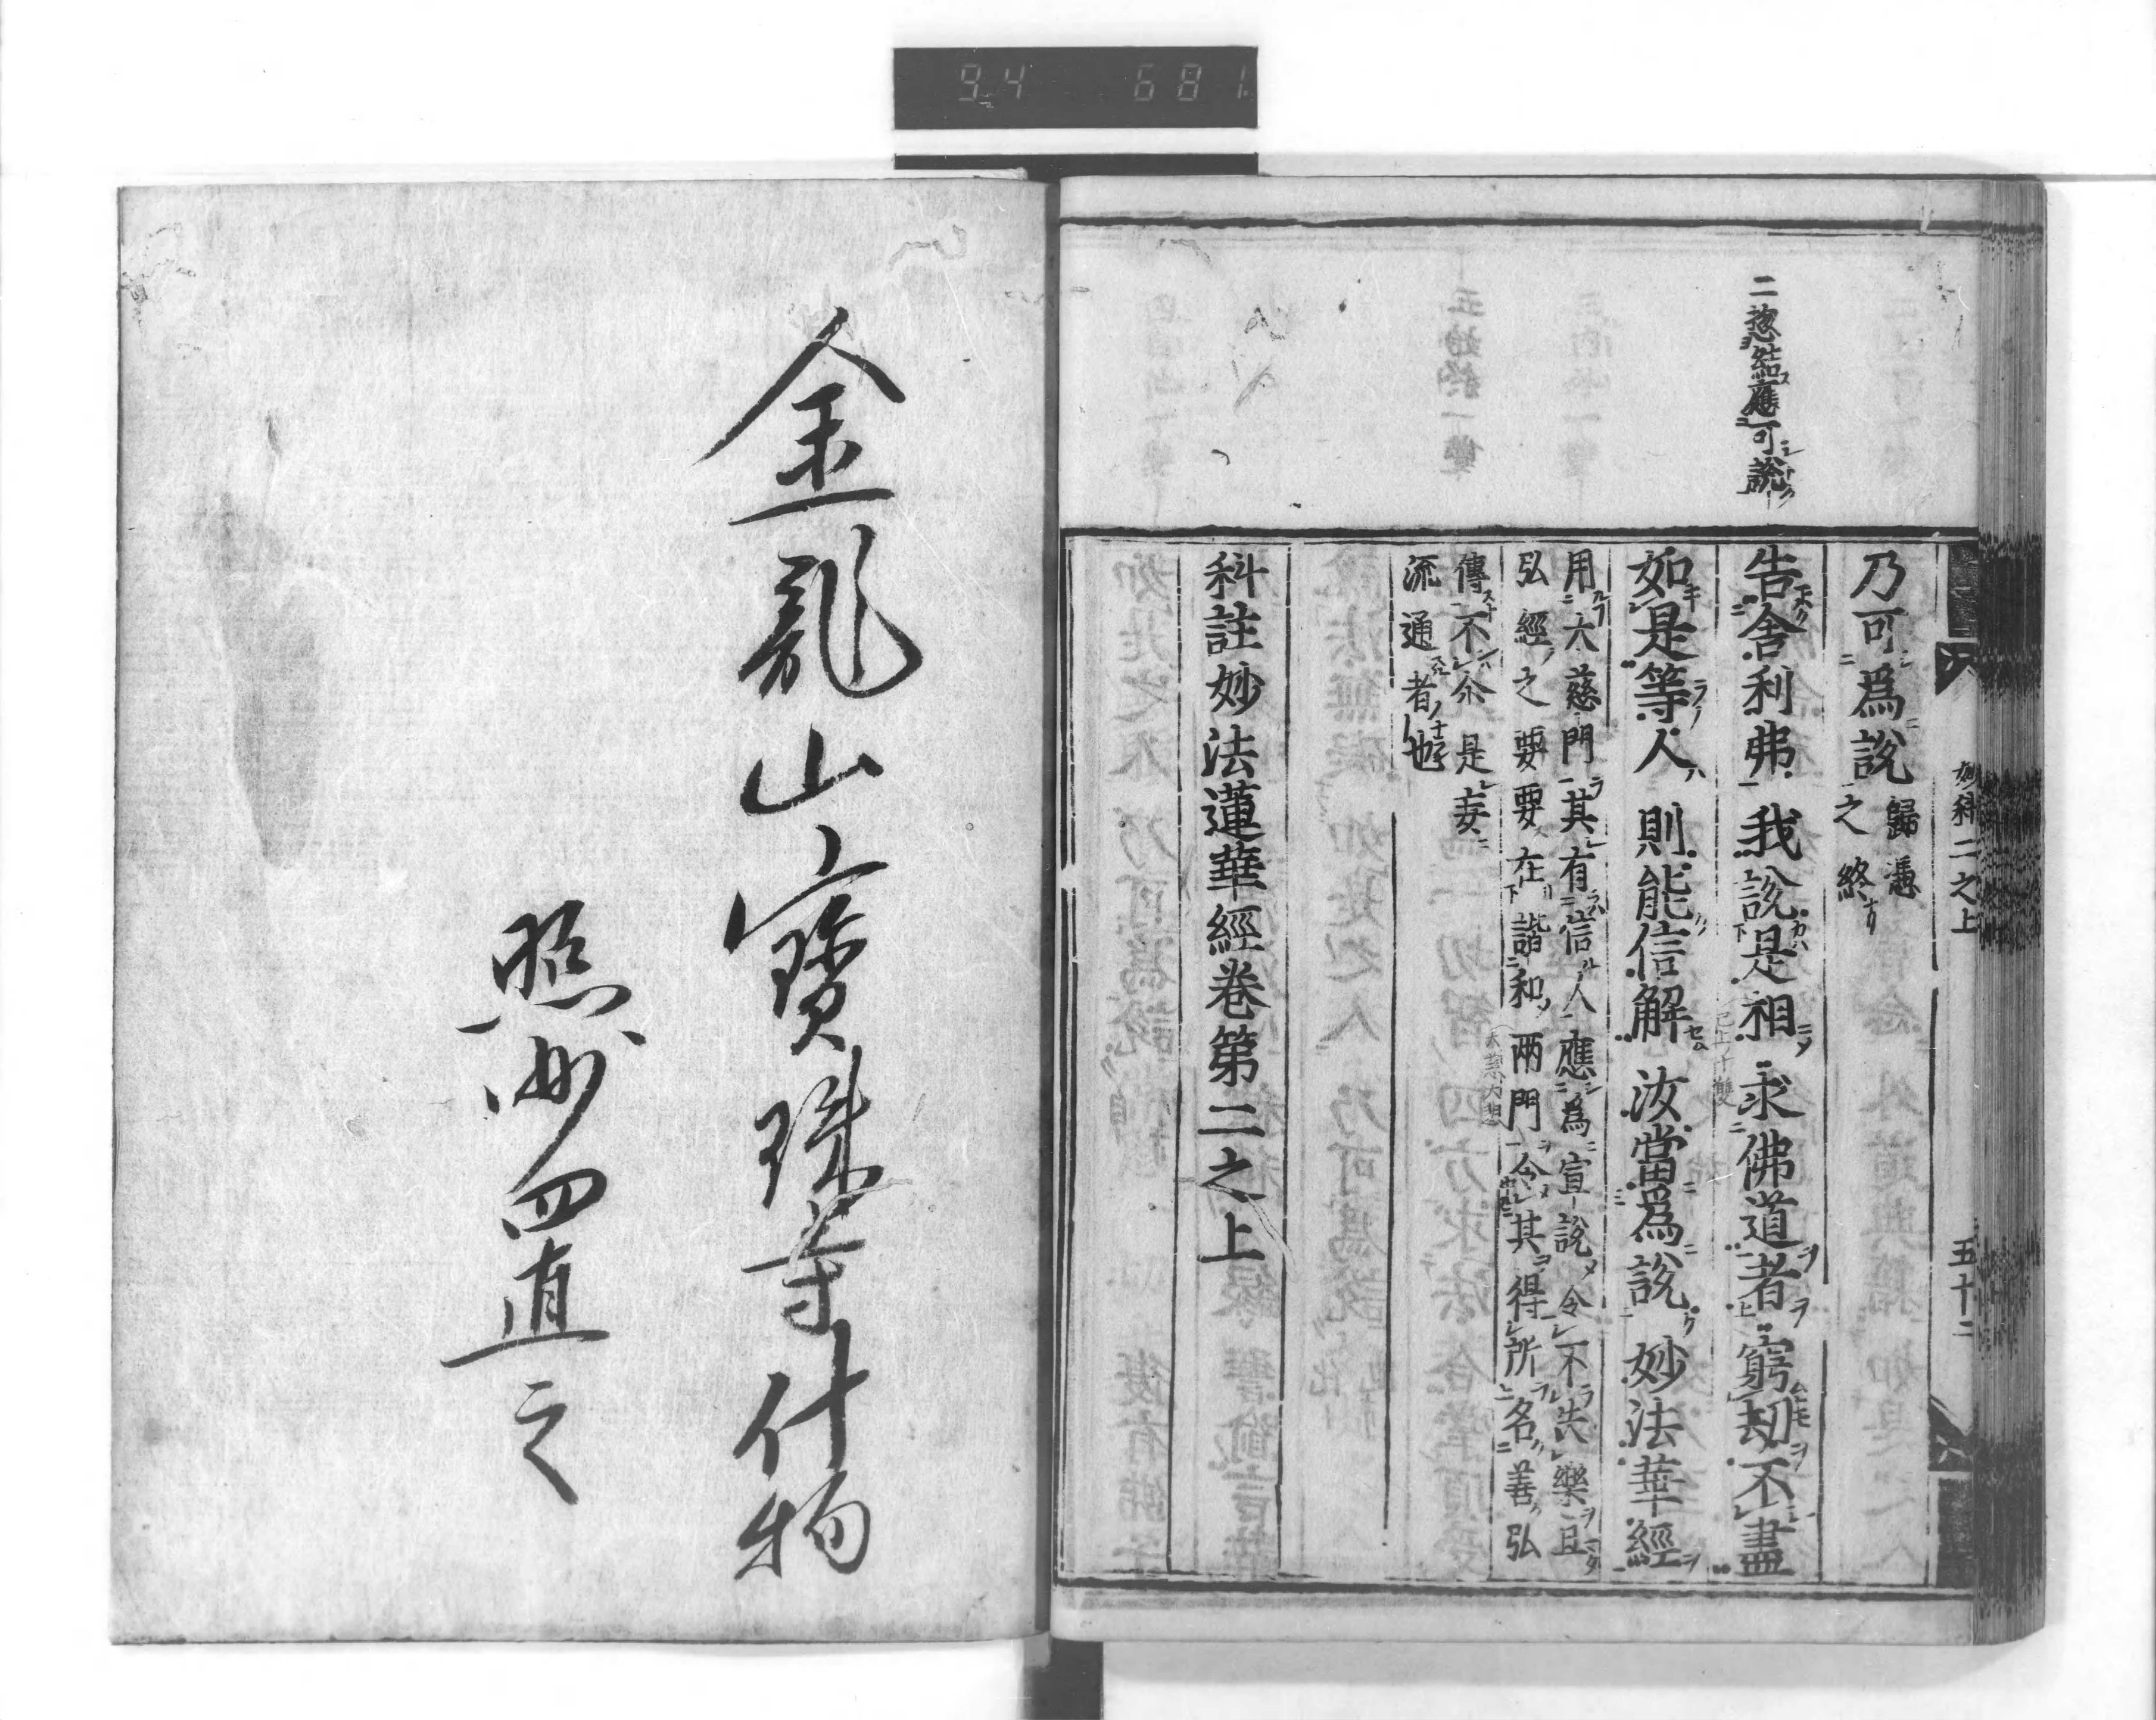 9.4 681
二 惣結應可説
乃可爲說 歸憑
之終
告舍利弗 我說是相 求佛道者 窮劫不盡
如是等人 則能信解 汝當爲說 妙法華經
用大慈門其有信人應爲宣說令不失樂且
弘經之要要在諧和兩門令其得所名善弘
傳不尒是妄
流通者也
科註妙法蓮華經卷第二之上
妙科二之上
五十二
金龍山寶珠寺什物
照妙四直之